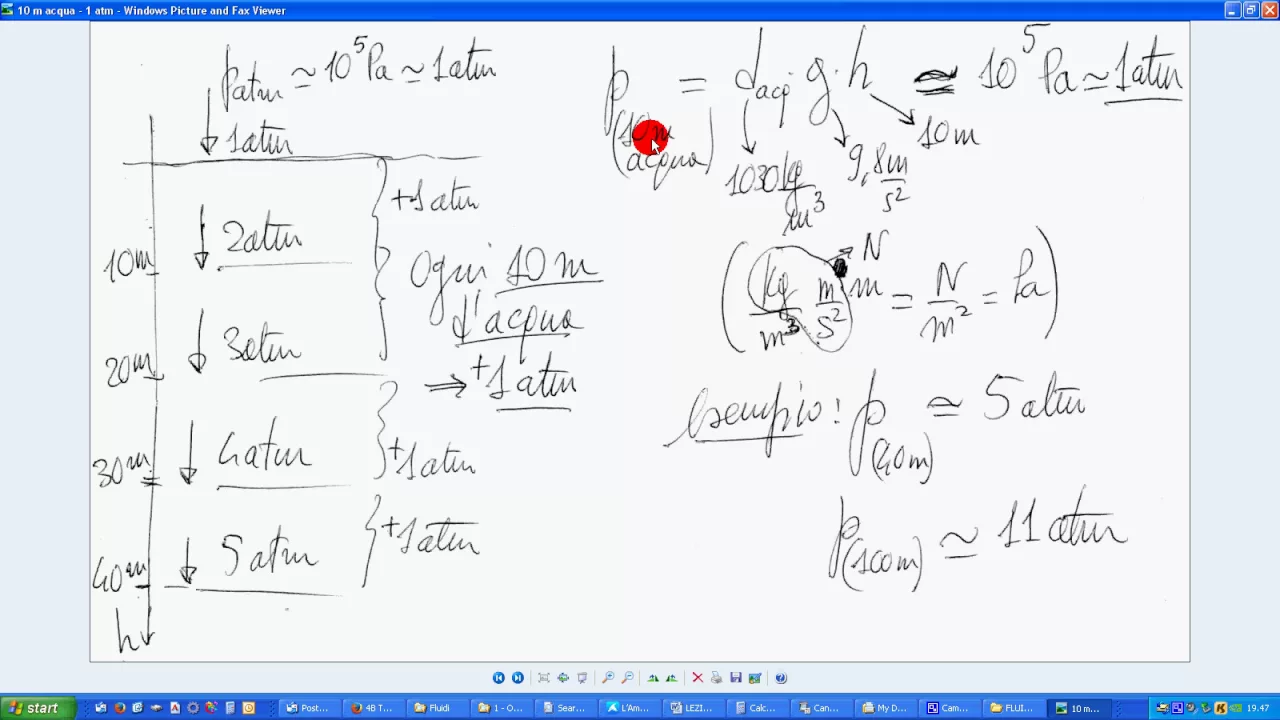 10 m acqua - 1 atm - Windows Picture and Fax Viewer
patm ≃ 10⁵ Pa ≃ 1 atm
1 atm
10m
2 atm
+1 atm
20m
3 atm
Ogni 10 m
d'acqua
⇒ +1 atm
30m
4 atm
+1 atm
40m
5 atm
+1 atm
h
p = dacq · g · h ≃ 10⁵ Pa ≃ 1 atm
(10 m
acqua)
1030 kg/m³
9,8 m/s²
10 m
(kg/m³ m/s² m = N/m² = Pa)
N
Esempio: p(40m) ≃ 5 atm
p(100m) ≃ 11 atm
start
Post...
4B T...
Fluidi
1 - O...
Sear...
L'Am...
LEZI...
Calc...
Can...
My D...
Cam...
FLUI...
10 m...
19.47